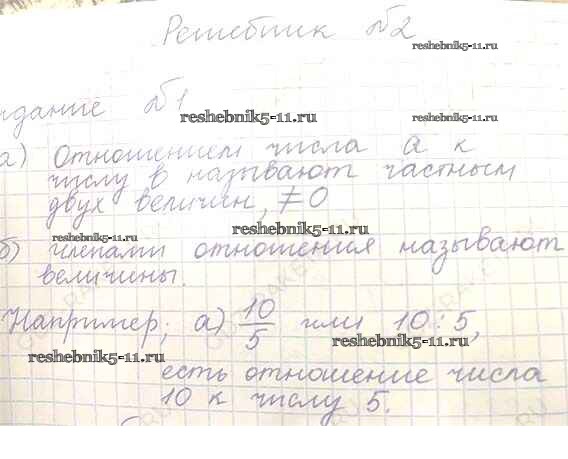 Решебник №2
reshebnik5-11.ru
задание №1
reshebnik5-11.ru
reshebnik5-11.ru
а) Отношением числа а к
числу в называют частным
двух величин, ≠0
reshebnik5-11.ru
reshebnik5-11.ru
б) членами отношения называют
величины.
reshebnik5-11.ru
Например; а) 10/5 или 10:5,
reshebnik5-11.ru
reshebnik5-11.ru
есть отношение числа
10 к числу 5.